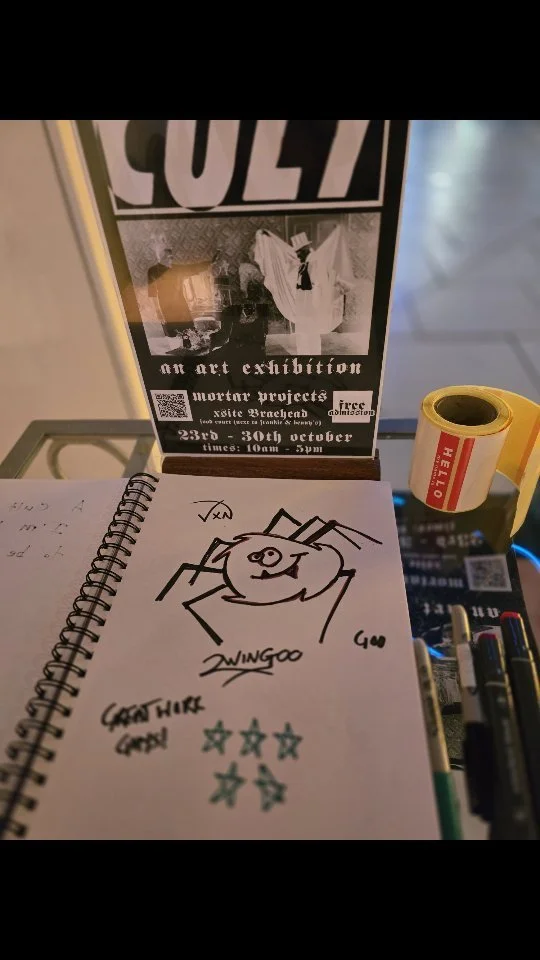 CULT
an art exhibition
mortar projects
xsite Braehead
(food court next to frankie & benny's)
free
admission
23rd - 30th october
times: 10am - 5pm
HELLO
JXN
Goo
2WINGOO
GREAT WORK
GUYS!
A